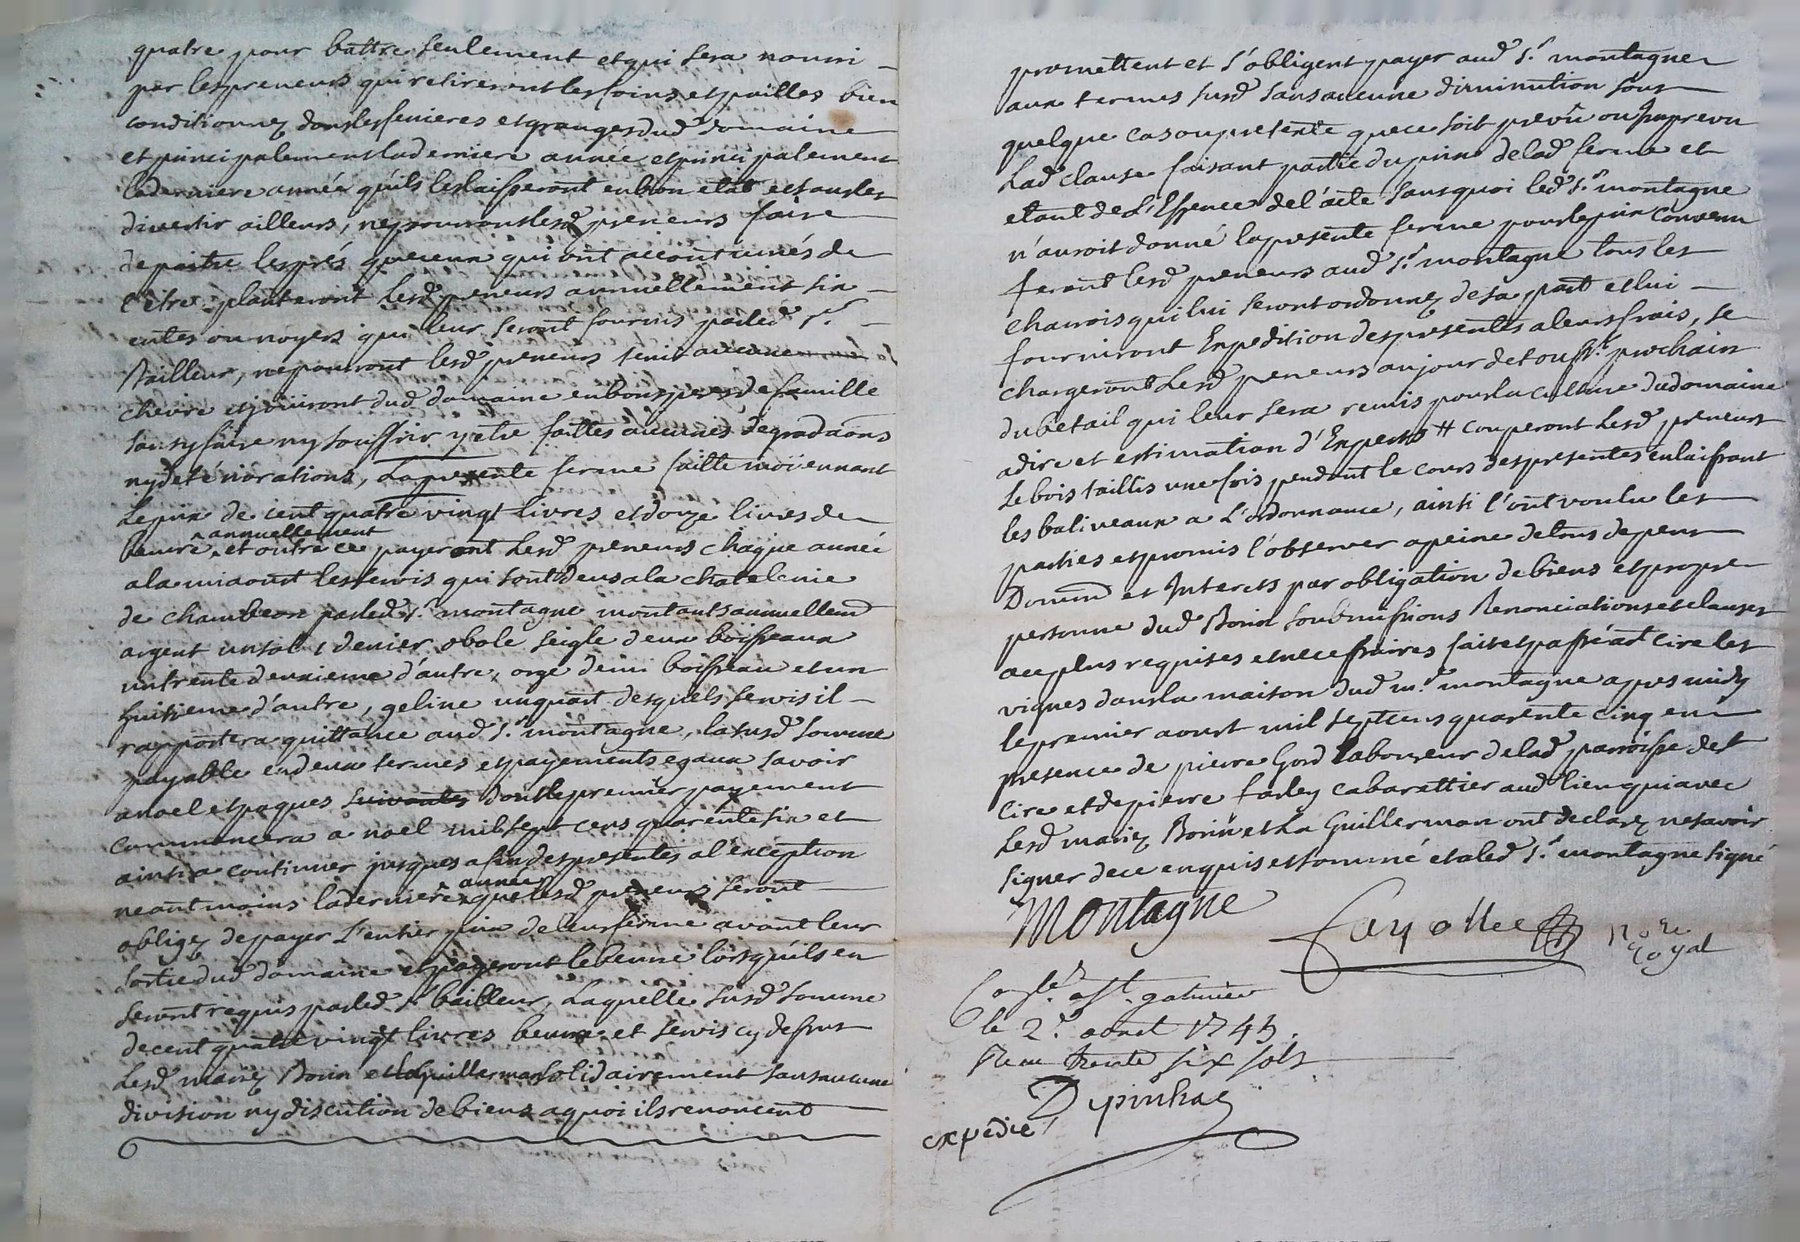 quatre pour battre seulement et qui sera nourri
par les preneurs qui retireront les foins et pailles bien
conditionnez dans les fenieres et granges dud domaine
et principalement la derniere année et principalement
la derniere année qu'ils les laisseront en bon etat et sans les
divertir ailleurs, ne pourront lesd preneurs faire
depaitre les prés que ceux qui ont accoutumés de
l'etre, planteront lesd preneurs annuellement six
entes ou noyers qui leur seront fournis par led sr
Bailleur, ne pourront lesd preneurs tenir aucune
chevre et jouiront dud domaine en bons peres de famille
sans y faire ny souffrir y etre faittes aucunes degradaons
ny deteriorations, la presente ferme faitte moïennant
le prix de cent quatre vingt livres et douze livres de
beurre annuellement et outre ce payeront lesd preneurs chaque année
a la miaoust les servis qui sont deus a la chatelenie
de chambeon par led sr montagne montants annuellemt
argent un sol 1 denier obole seigle deux boisseaux
un trente deuxieme d'autre, orge demi boisseau et un
huitieme d'autre, geline un quart desquels servis il
rapportera quittance aud sr montagne, la susd somme
payable en deux termes et payements egaux savoir
a noel et paques suivantes dont le premier payement
commencera a noel mil sept cens quarente six et
ainsi a continuer jusques a fin des presentes a l'exception
neantmoins la derniere année que lesd preneurs seront
obligez de payer l'entier prix de leur ferme avant leur
sortie dud domaine et payeront le beurre lors qu'ils en
seront requis par led sr bailleur, laquelle susd somme
de cent quatre vingt livres beurre et servis cy dessus
lesd mariez Bonin et la guillerman solidairement sans aucune
division ny discution de biens a quoi ils renoncent
promettent et s'obligent payer aud sr montagne
aux termes susd sans aucune diminution sous
quelque cas ou pretexte que ce soit prevû ou Imprevu
Lad clause faisant partie du prix de lad ferme et
etant de l'Essence de l'acte sans quoi led sr montagne
n'auroit donné la presente ferme pour le prix convenu
feront lesd preneurs aud sr montagne tous les
charrois qui lui seront ordonnez de sa part et lui
fourniront Expedition des presentes a leurs frais, se
chargeront lesd preneurs au jour de touss.ts prochain
du betail qui leur sera remis pour la culture dud domaine
a dire et estimation d'Experts # couperont lesd preneurs
le bois taillis une fois pendant le cours des presentes en laissant
les baliveaux a l'ordonnance, ainsi l'ont voulu les
parties et promis l'observer a peine de tous depens
Domm et Interets par obligation de biens et propre
personne dud Bonin soubmissions Renonciations et clauses
au plus requises et necessaires fait et passé aud cire les
vignes dans la maison dud m.e montagne apres midy
le premier aoust mil sept cens quarente cinq en
presence de pierre Gord laboureur de lad parroisse de st
cire et de pierre farley cabarettier aud lieu qui avec
lesd mariez Bonin et La Guillerman ont declarez ne savoir
signer de ce enquis et sommé et a led sr montagne signé
Montagne
Fayolle Nore
Royal
Con.lé a st galmier
le 2.e aoust 1745.
Reçu trente six sols
Depinhac
expedié